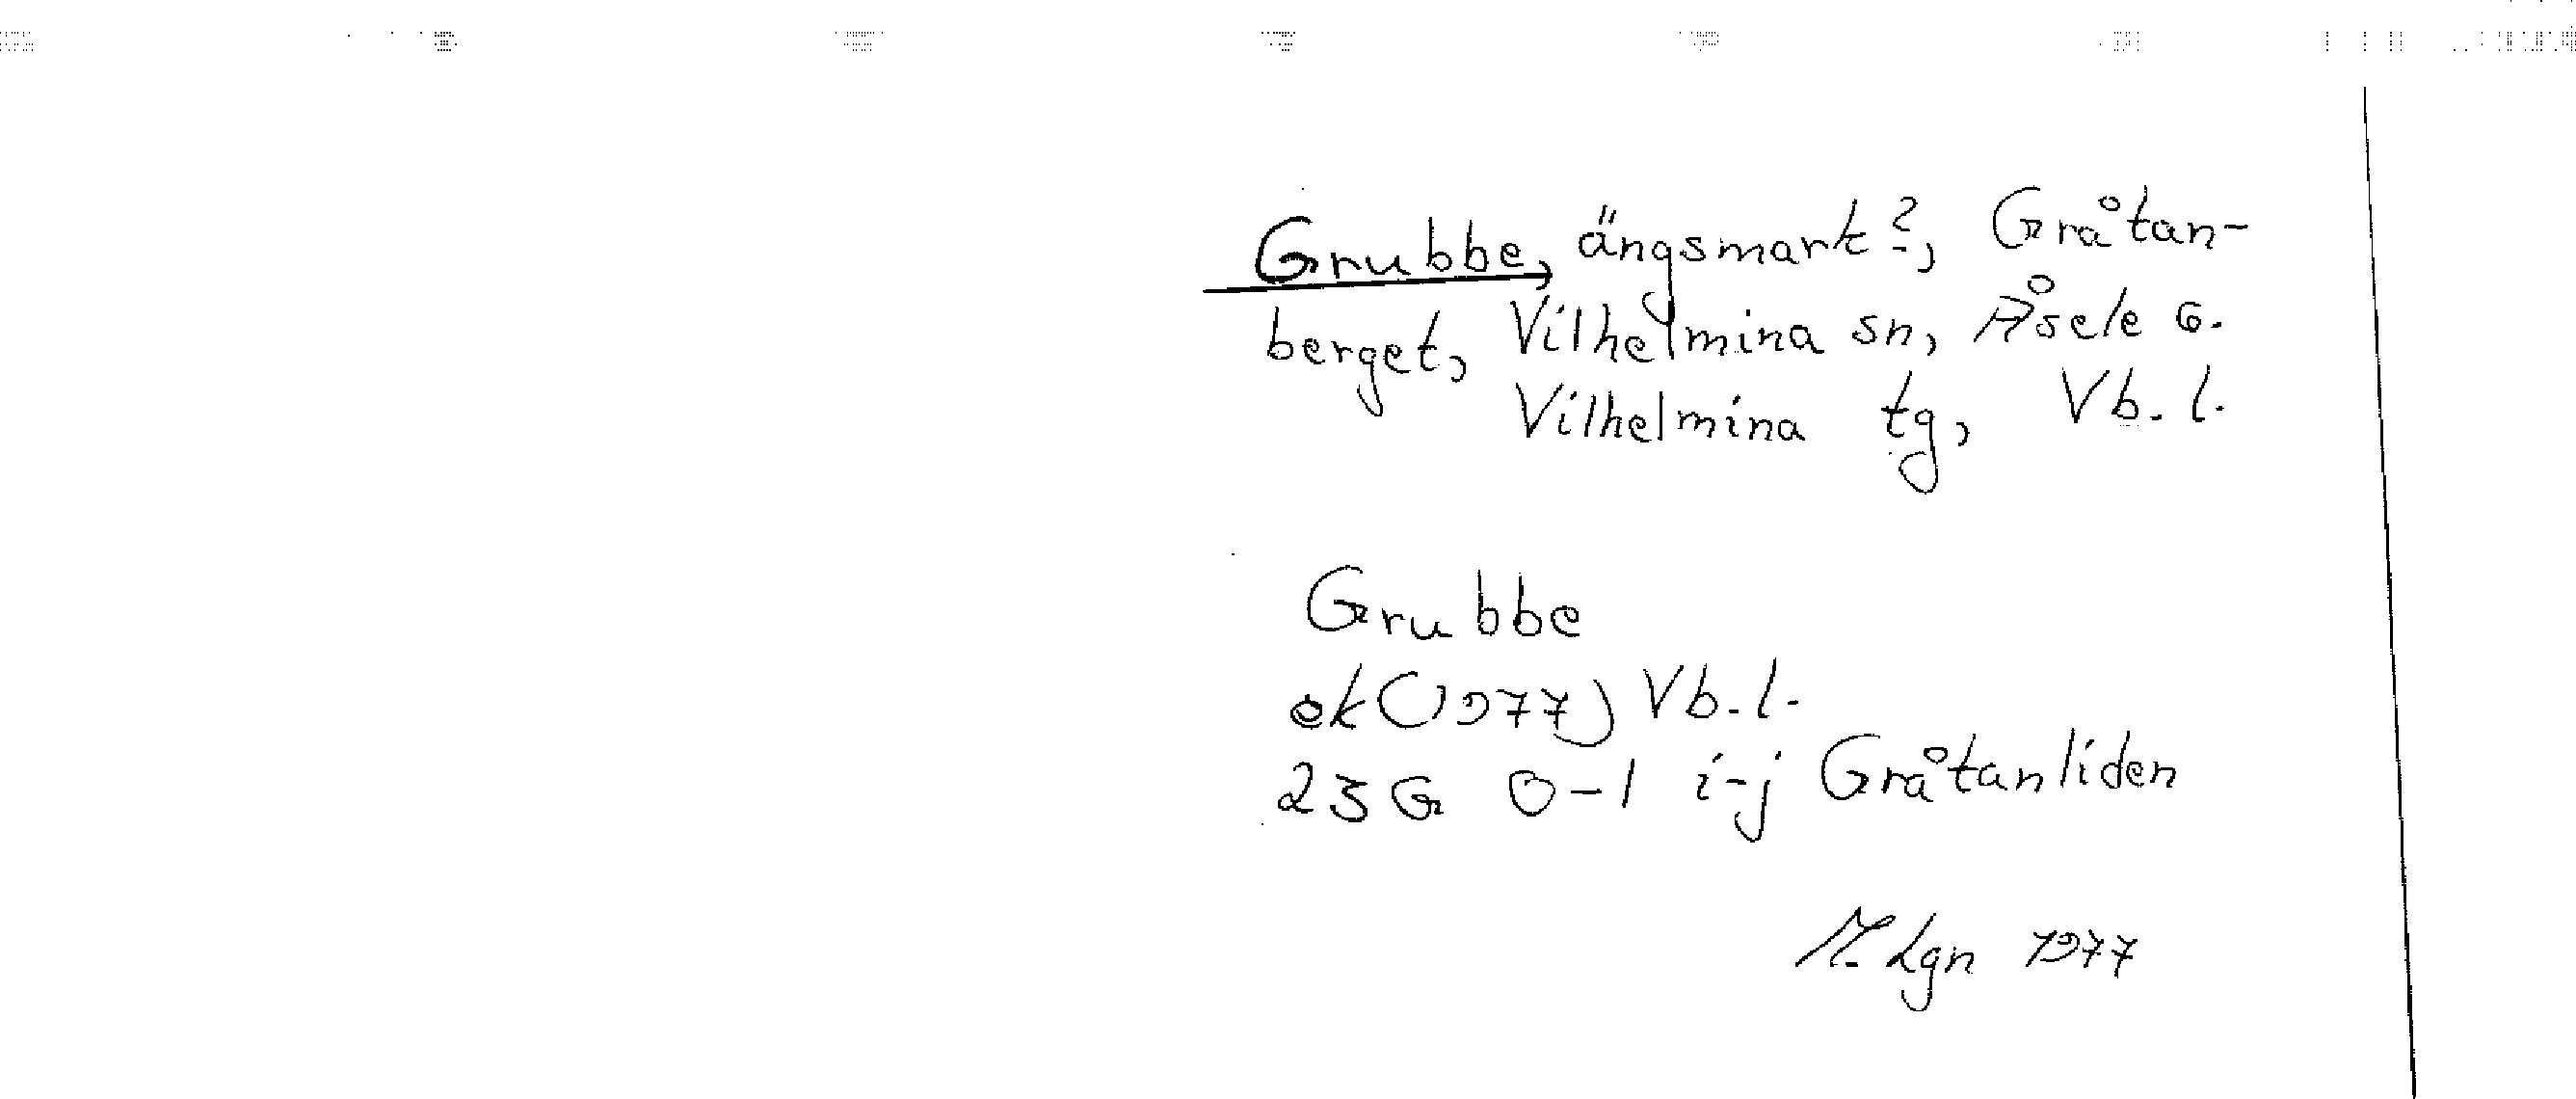 Grubbe, ängsmark?, Gråtan-
berget, Vilhelmina sn, Åsele G.
Vilhelmina tg, Vb. l.
Grubbe
ek (1977) Vb. l.
23G 0-1 i-j Gråtanliden
M. Lgn 1977